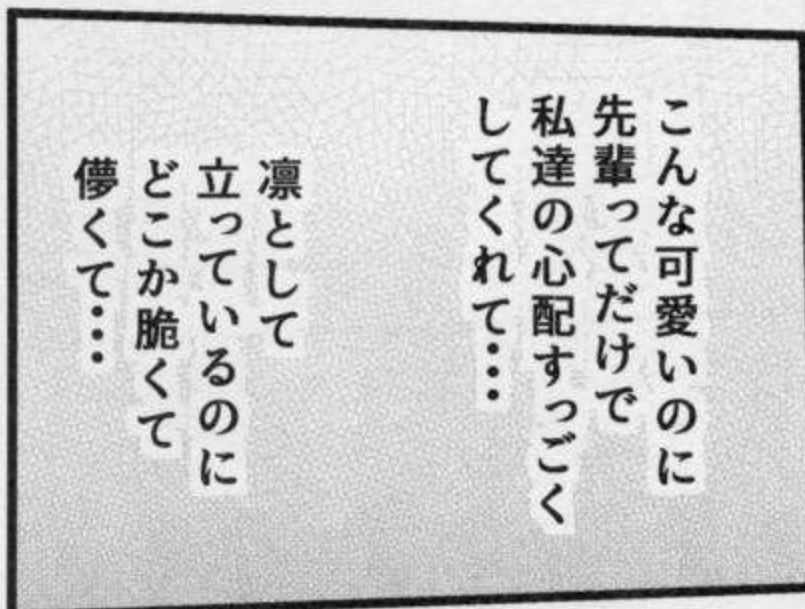 こんな可愛いのに
先輩ってだけで
私達の心配すっごく
してくれて…
凛として
立っているのに
どこか脆くて
儚くて…